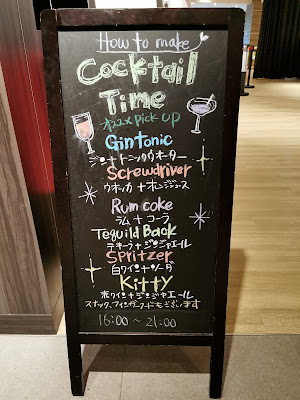 How to make
Cocktail
Time
オススメ PICK UP
Gin tonic
ジン+トニックウォーター
Screwdriver
ウオッカ+オレンジジュース
Rum coke
ラム+コーラ
Tequila Back
テキーラ+ジンジャエール
Spritzer
白ワイン+ソーダ
Kitty
赤ワイン+ジンジャエール
スナック、フィンガーフードもございます
16:00~21:00